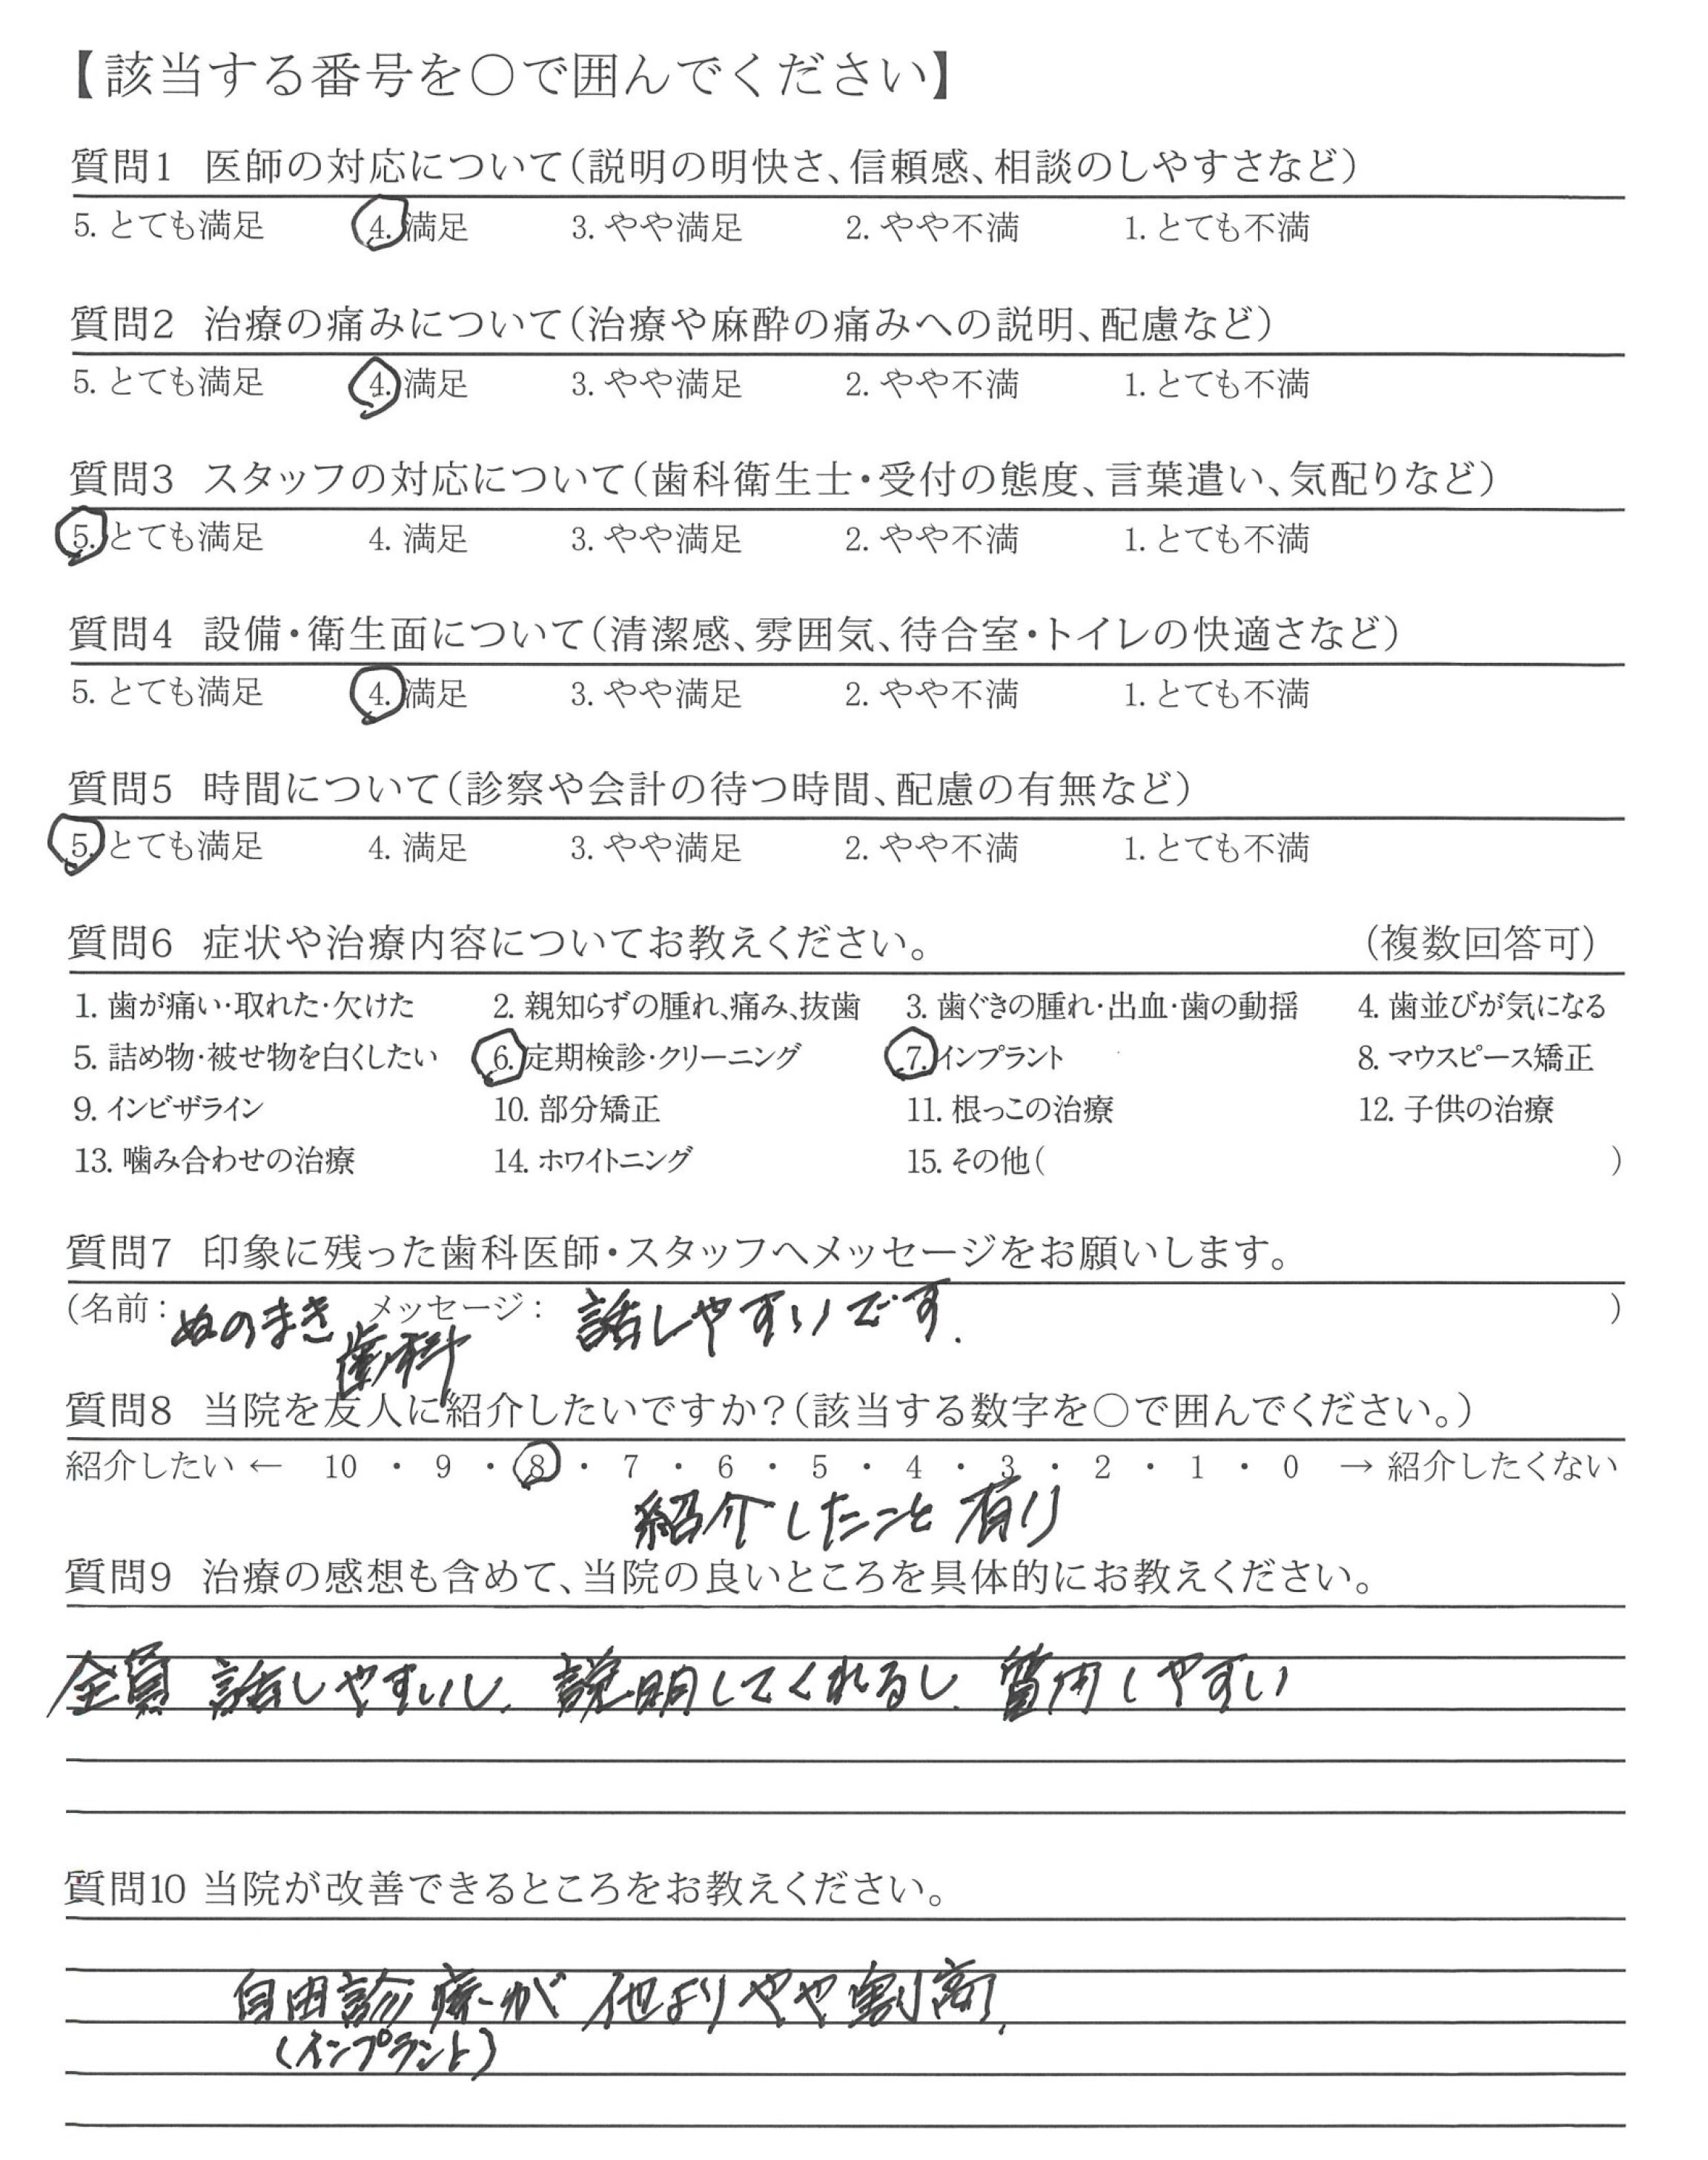 【該当する番号を○で囲んでください】
質問1 医師の対応について(説明の明快さ、信頼感、相談のしやすさなど)
5. とても満足 4. 満足 3. やや満足 2. やや不満 1. とても不満
質問2 治療の痛みについて(治療や麻酔の痛みへの説明、配慮など)
5. とても満足 4. 満足 3. やや満足 2. やや不満 1. とても不満
質問3 スタッフの対応について(歯科衛生士・受付の態度、言葉遣い、気配りなど)
5. とても満足 4. 満足 3. やや満足 2. やや不満 1. とても不満
質問4 設備・衛生面について(清潔感、雰囲気、待合室・トイレの快適さなど)
5. とても満足 4. 満足 3. やや満足 2. やや不満 1. とても不満
質問5 時間について(診察や会計の待つ時間、配慮の有無など)
5. とても満足 4. 満足 3. やや満足 2. やや不満 1. とても不満
質問6 症状や治療内容についてお教えください。 (複数回答可)
1. 歯が痛い・取れた・欠けた 2. 親知らずの腫れ、痛み、抜歯 3. 歯ぐきの腫れ・出血・歯の動揺 4. 歯並びが気になる
5. 詰め物・被せ物を白くしたい 6. 定期検診・クリーニング 7. インプラント 8. マウスピース矯正
9. インビザライン 10. 部分矯正 11. 根っこの治療 12. 子供の治療
13. 噛み合わせの治療 14. ホワイトニング 15. その他( )
質問7 印象に残った歯科医師・スタッフへメッセージをお願いします。
(名前: ぬのまき メッセージ: 話しやすいです. )
歯科
質問8 当院を友人に紹介したいですか?(該当する数字を○で囲んでください。)
紹介したい ← 10 ・ 9 ・ 8 ・ 7 ・ 6 ・ 5 ・ 4 ・ 3 ・ 2 ・ 1 ・ 0 → 紹介したくない
紹介したこと有り
質問9 治療の感想も含めて、当院の良いところを具体的にお教えください。
全員 話しやすいし、説明してくれるし、質問しやすい
質問10 当院が改善できるところをお教えください。
自由診療が他よりやや割高、
(インプラント)